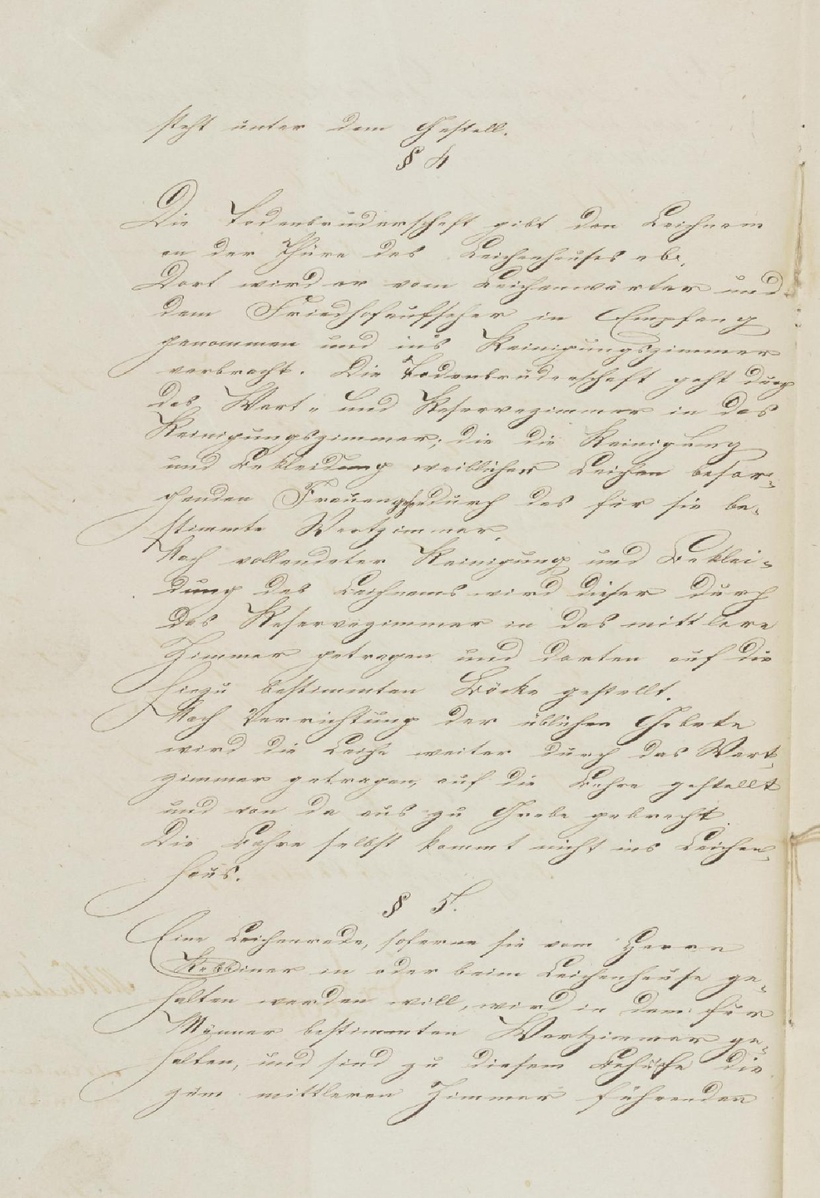 steht unter dem Gestell.
§ 4
Die Todenbruderschaft gibt den Leichnam
an der Thüre des Leichenhauses ab.
Dort wird er vom Leichenwärter und
dem Friedhofaufseher in Empfang
genommen und in's Reinigungszimmer
verbracht. Die Todenbruderschaft geht durch
das Wart- und Reservezimmer in das
Reinigungszimmer; die die Reinigung
und Bekleidung weiblicher Leichen besor-
genden Frauen durch das für sie be-
stimmte Wartzimmer.
Nach vollendeter Reinigung und Beklei-
dung des Leichnams wird dieser durch
das Reservezimmer in das mittlere
Zimmer getragen und dorten auf die
hiezu bestimmten Böcke gestellt.
Nach Verrichtung der üblichen Gebete
wird die Leiche weiter durch das Wart-
zimmer getragen, auf die Bahre gestellt
und von da aus zu Grabe gebracht.
Die Bahre selbst kommt nicht ins Leichen-
haus.
§ 5.
Eine Leichenrede, soferne sie vom Herrn
Rabbiner in oder beim Leichenhause ge-
halten werden will, wird in dem für
Männer bestimmten Wartzimmer ge-
halten, und sind zu diesem Behufe die
zum mittleren Zimmer führenden